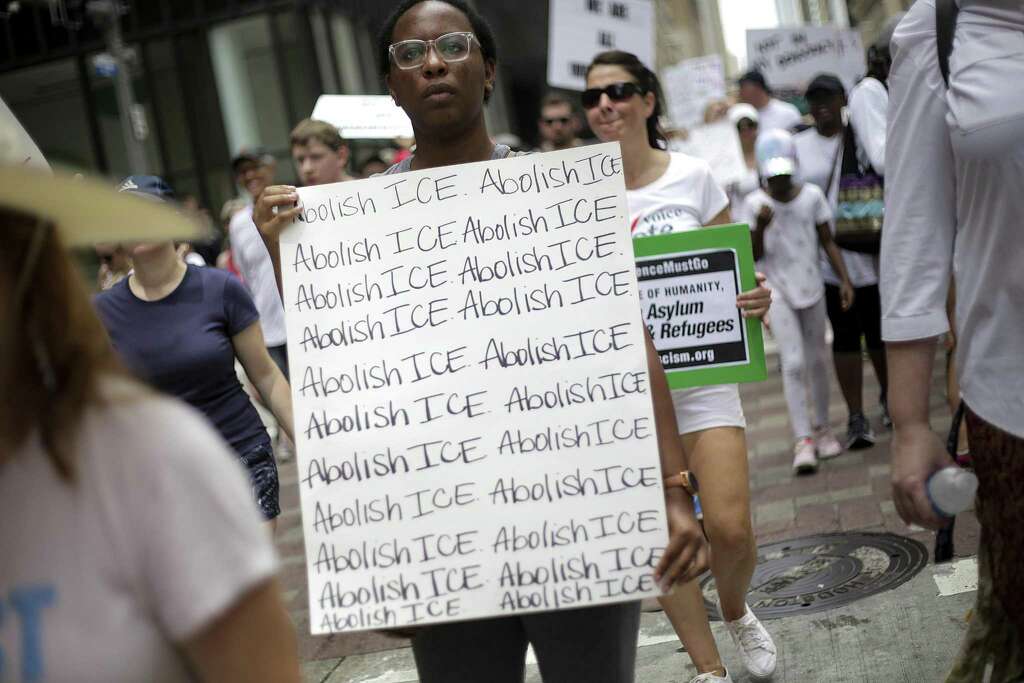 Abolish ICE. Abolish ICE
Abolish ICE. Abolish ICE.
Abolish ICE. Abolish ICE.
Abolish ICE. Abolish ICE.
Abolish ICE. Abolish ICE.
Abolish ICE. Abolish ICE.
Abolish ICE. Abolish ICE.
Abolish ICE. Abolish ICE.
Abolish ICE. Abolish ICE.
Abolish ICE. Abolish ICE.
Abolish ICE. Abolish ICE.
WE ARE
voice
enceMustGo
E OF HUMANITY,
Asylum
& Refugees
cism.org
ST